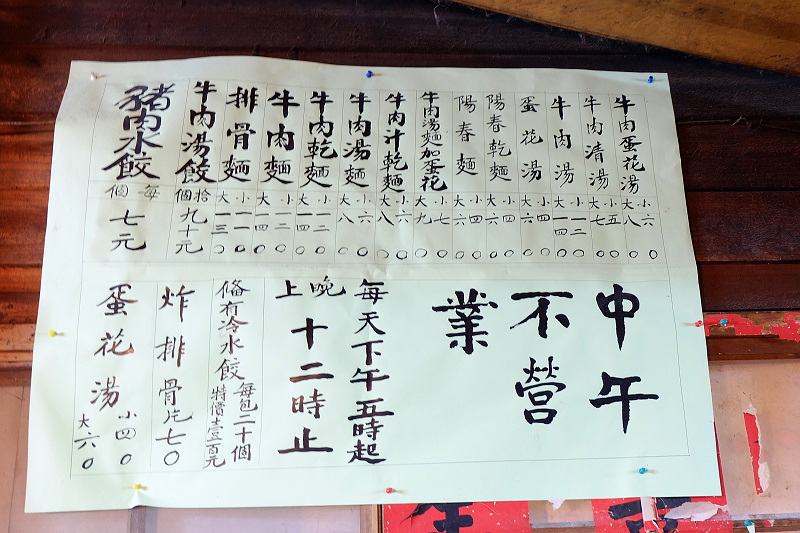 牛肉蛋花湯 小六〇 大八〇
牛肉清湯 小五〇 大七〇
牛肉湯 小一二〇 大一四〇
蛋花湯 小四〇 大六〇
陽春乾麵 小四〇 大六〇
陽春麵 小四〇 大六〇
牛肉湯麵加蛋花 小七〇 大九〇
牛肉汁乾麵 小六〇 大八〇
牛肉湯麵 小六〇 大八〇
牛肉乾麵 小一二〇 大一四〇
牛肉麵 小一二〇 大一四〇
排骨麵 小一一〇 大一三〇
牛肉湯餃 拾個 九十元
豬肉水餃 每個 七元
中午
不營
業
每天下午五時起
晚上十二時止
備有冷水餃 每包二十個
特價壹百元
炸排骨片七〇
蛋花湯 小四〇
大六〇